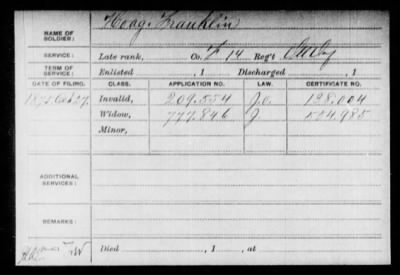 NAME OF SOLDIER: Hoag, Franklin
SERVICE: Late rank, Co. F 14 Reg't
TERM OF SERVICE: Enlisted , 1 Discharged , 1
DATE OF FILING. CLASS. APPLICATION NO. LAW. CERTIFICATE NO.
1875 Oct 27. Invalid, 209.554 128.004
Widow, 777.846 J. 554.985
Minor,
ADDITIONAL SERVICES:
REMARKS:
Died , 1 , at